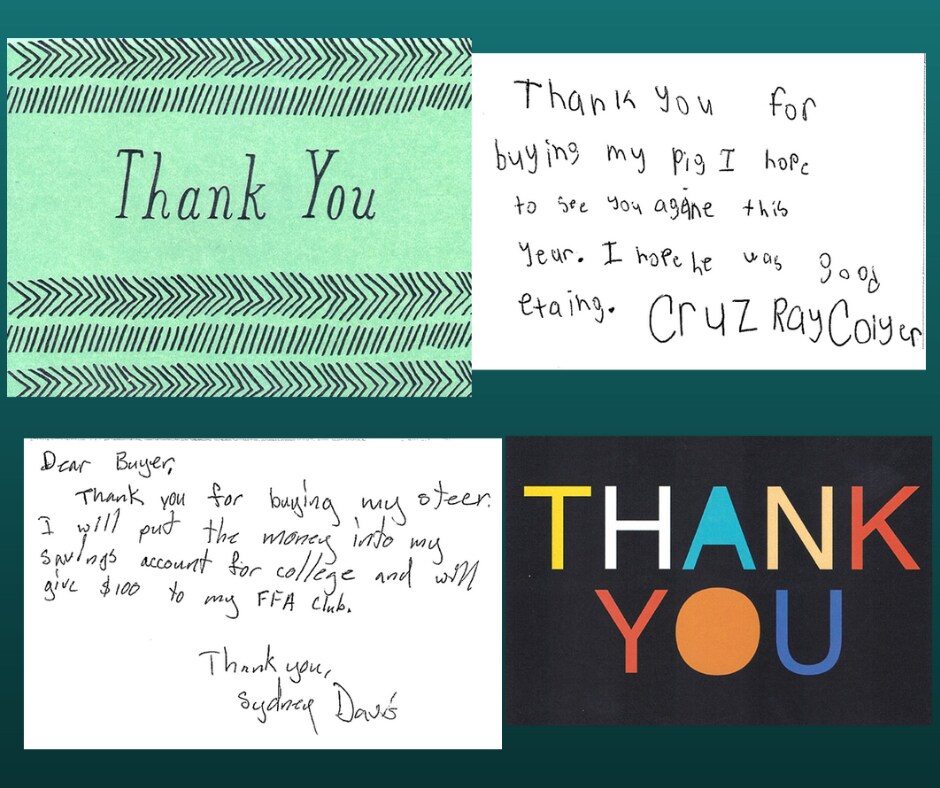 Thank You
Thank you for
buying my pig I hope
to see you agane this
year. I hope he was good
etaing. Cruz Ray Colyer
Dear Buyer,
Thank you for buying my steer.
I will put the money into my
savings account for college and will
give $100 to my FFA club.
Thank you,
Sydney Davis
THANK
YOU